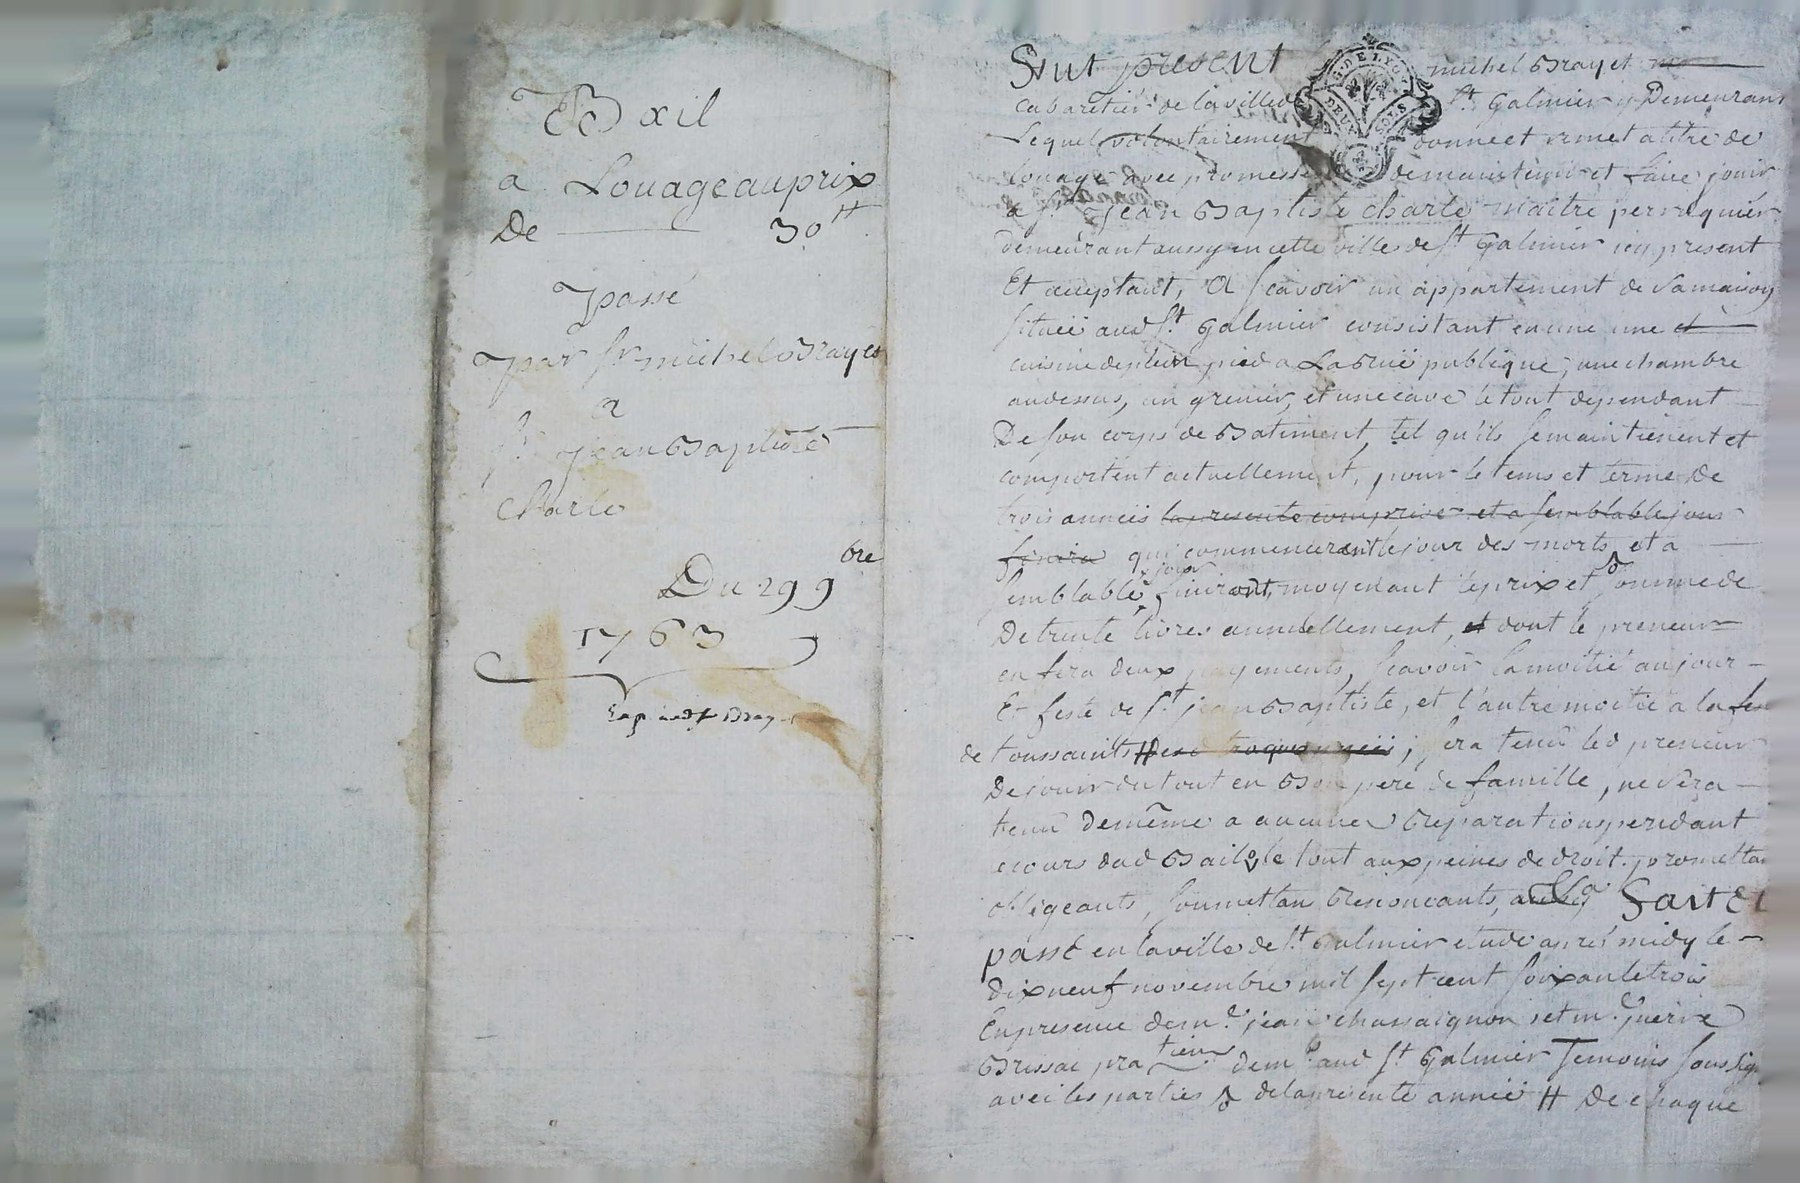 Bail
a Louage au prix
De 30 ᵗᵗ
passé
par Sr michel Brayet
a
Sr jean Baptiste
Charle
Du 29 9bre
1763
Exp Brayet
Sont present michel Brayet
cabaretier de la ville de St Galmier y Demeurant
Lequel volontairement donne et remet a titre de
louage avec promesse de maintenir et faire jouir
a Sr jean Baptiste charle maitre perruquier
demeurant aussy en cette ville de St Galmier icy present
Et acceptant, A scavoir un appartement de sa maison
située aud St Galmier consistant en une une
cuisine de plein pied a La Rue publique, une chambre
au dessus, un grenier, et une cave le tout dependant
De son corps de Batiment, tel qu'ils se maintienent et
comportent actuellement, pour le tems et terme De
trois années la presente comprise et a semblable jour
finira qui commenceront le jour des morts et a
semblable jour finiront, moyenant le prix et somme de
De trente livres annuellement, et dont le preneur
en fera deux payements, scavoir la moitié au jour
Et feste de St jean Baptiste, et l'autre moitié a la
de toussaints # ; sera tenu led preneur
De jouir du tout en Bon pere de famille, ne sera
tenu de même a aucune Reparations pendant
e cours dud Bail, le tout aux peines de droit. promettan
obligeants, soumettan Renoncants, &a Fait Et
passé en la ville de St Galmier etude après midy le
dix neuf novembre mil sept cent soixante trois
En presence de me jean chassaignon et me pierre
Brissac praticiens demt aud St Galmier Temoins soussig
avec les parties de la presente année # De chaque